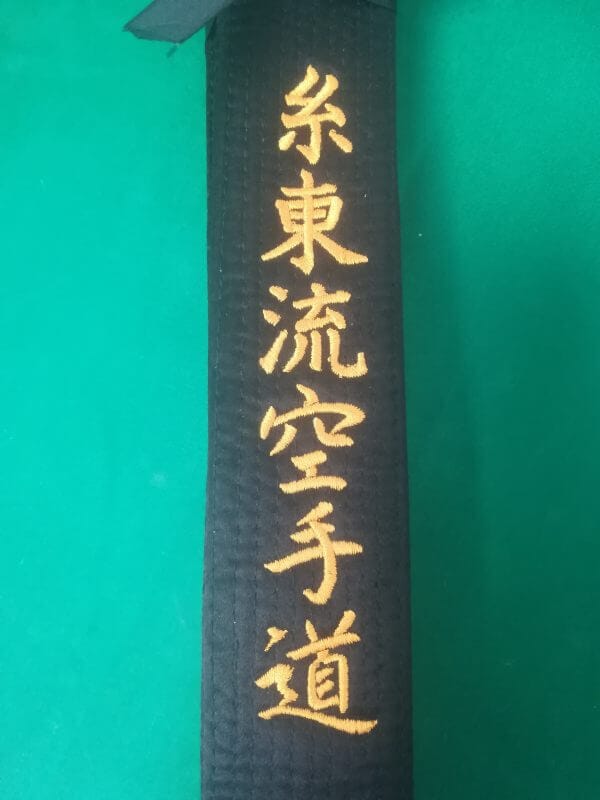 糸東流空手道